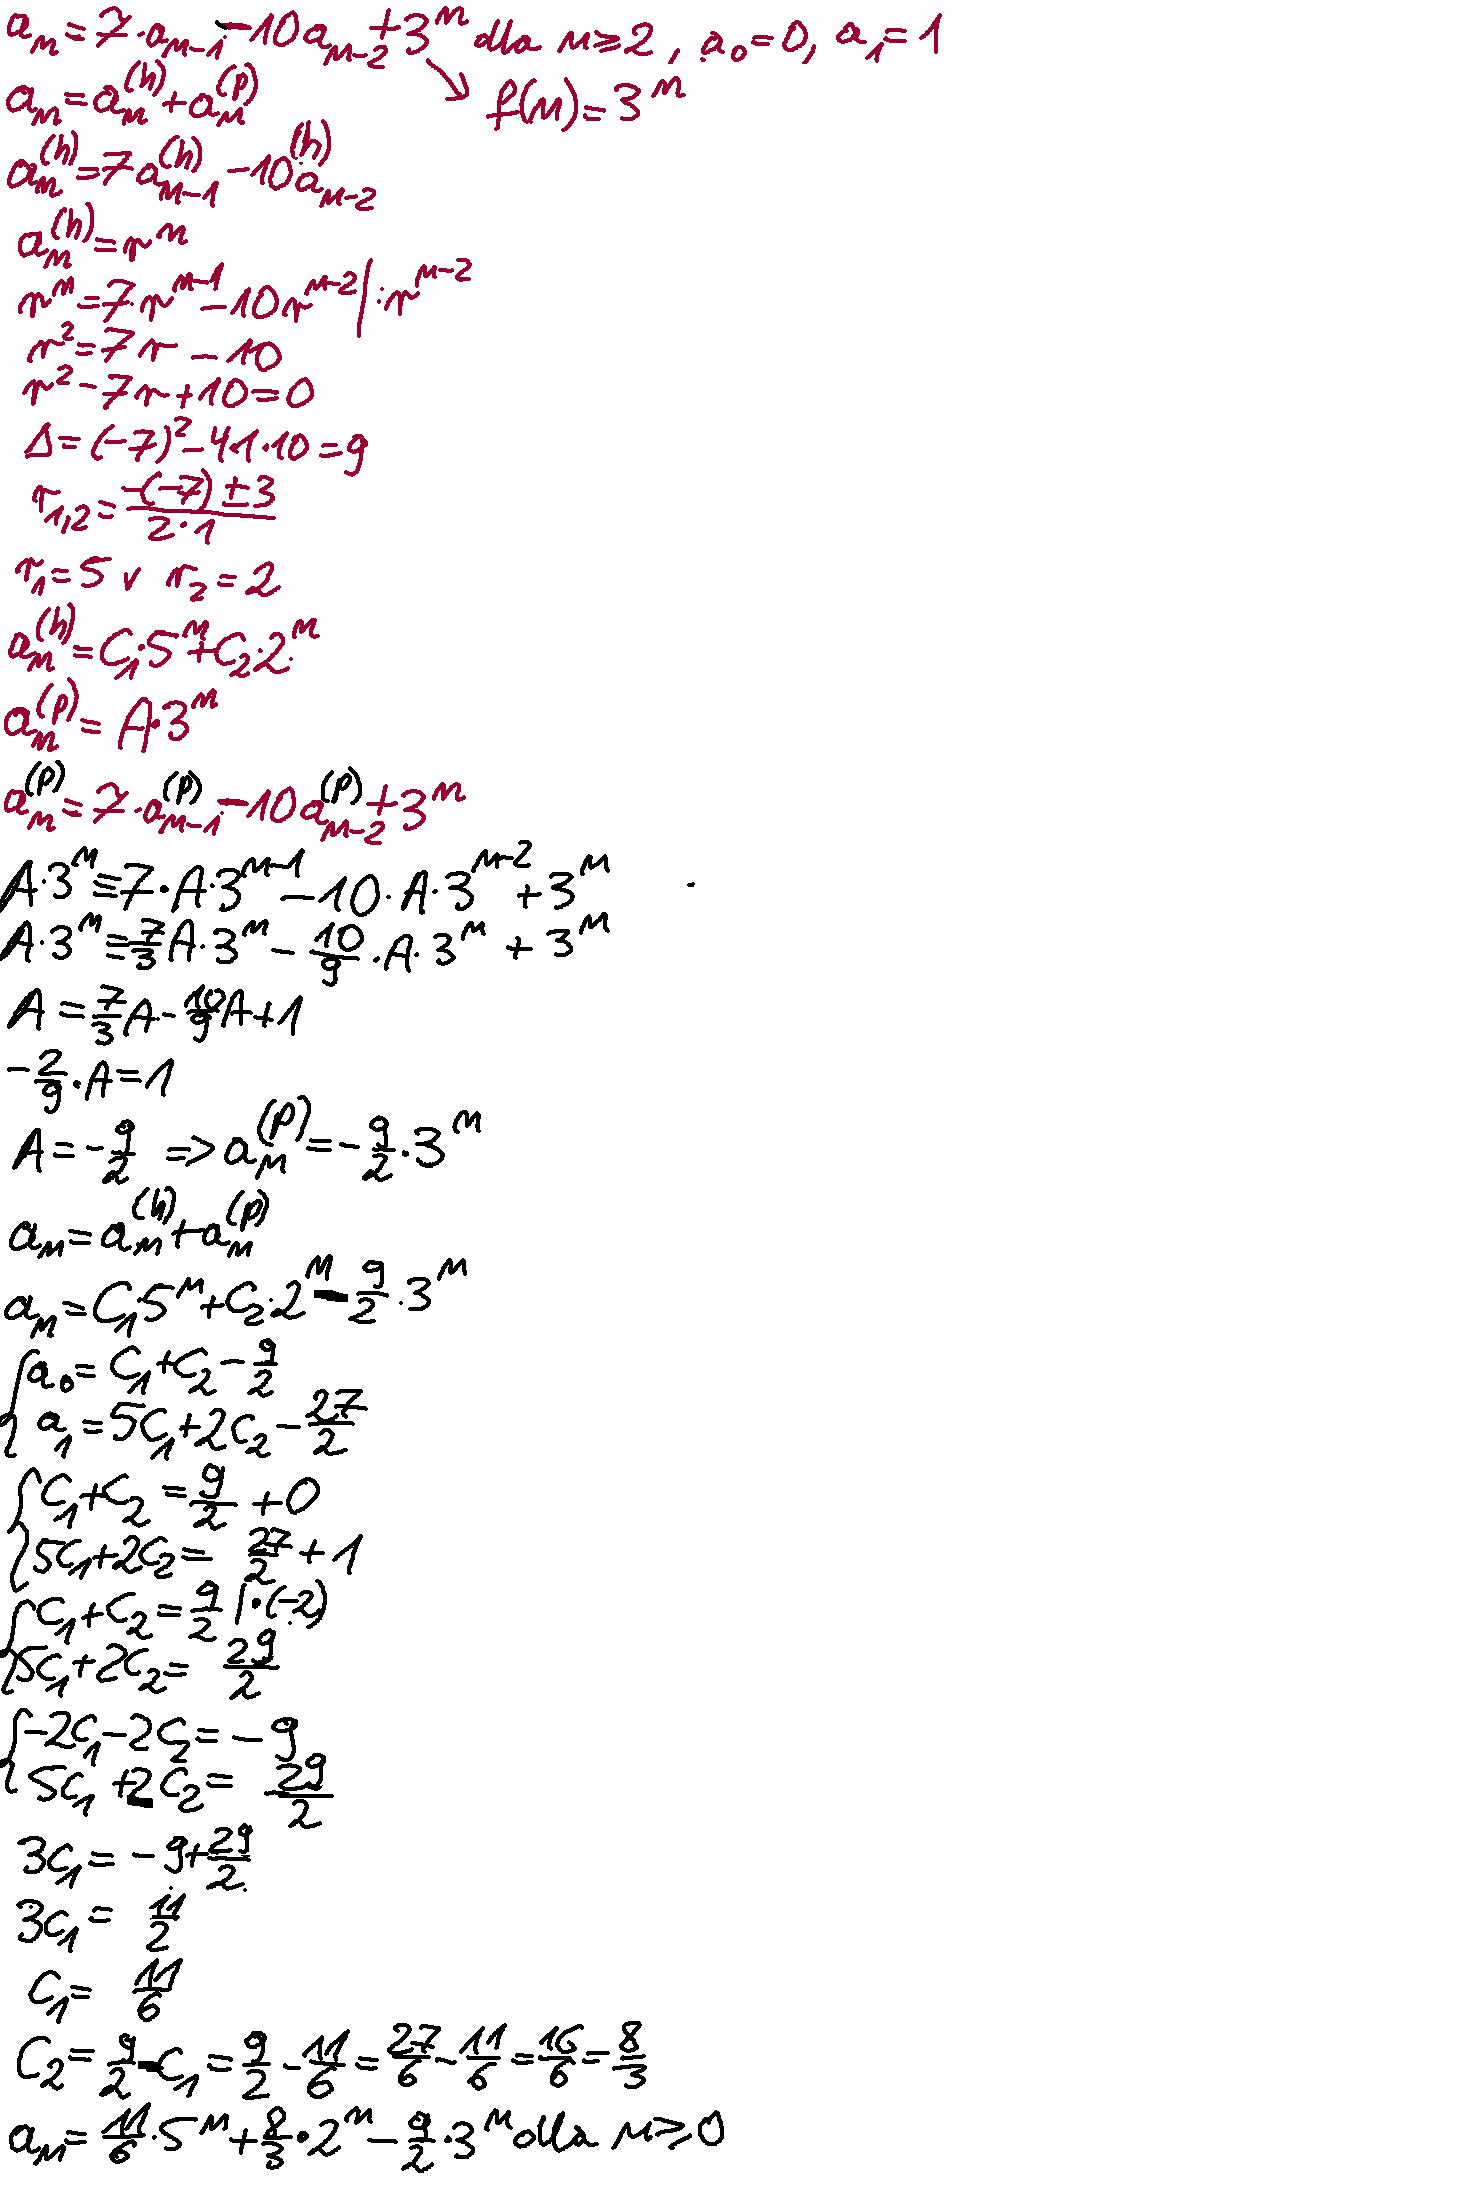 aₙ = 7·aₙ₋₁ - 10aₙ₋₂ + 3ⁿ dla n ≥ 2, a₀ = 0, a₁ = 1
aₙ = aₙ⁽ʰ⁾ + aₙ⁽ᵖ⁾ f(n) = 3ⁿ
aₙ⁽ʰ⁾ = 7aₙ₋₁⁽ʰ⁾ - 10aₙ₋₂⁽ʰ⁾
aₙ⁽ʰ⁾ = rⁿ
rⁿ = 7·rⁿ⁻¹ - 10rⁿ⁻² | : rⁿ⁻²
r² = 7r - 10
r² - 7r + 10 = 0
Δ = (-7)² - 4·1·10 = 9
r₁,₂ = (-(-7) ± 3)/(2·1)
r₁ = 5 ∨ r₂ = 2
aₙ⁽ʰ⁾ = C₁·5ⁿ + C₂·2ⁿ
aₙ⁽ᵖ⁾ = A·3ⁿ
aₙ⁽ᵖ⁾ = 7·aₙ₋₁⁽ᵖ⁾ - 10aₙ₋₂⁽ᵖ⁾ + 3ⁿ
A·3ⁿ = 7·A·3ⁿ⁻¹ - 10·A·3ⁿ⁻² + 3ⁿ
A·3ⁿ = 7/3 A·3ⁿ - 10/9·A·3ⁿ + 3ⁿ
A = 7/3 A - 10/9 A + 1
-2/9·A = 1
A = -9/2 => aₙ⁽ᵖ⁾ = -9/2·3ⁿ
aₙ = aₙ⁽ʰ⁾ + aₙ⁽ᵖ⁾
aₙ = C₁·5ⁿ + C₂·2ⁿ - 9/2·3ⁿ
{ a₀ = C₁ + C₂ - 9/2
a₁ = 5C₁ + 2C₂ - 27/2
{ C₁ + C₂ = 9/2 + 0
5C₁ + 2C₂ = 27/2 + 1
{ C₁ + C₂ = 9/2 |·(-2)
5C₁ + 2C₂ = 29/2
{ -2C₁ - 2C₂ = -9
5C₁ + 2C₂ = 29/2
3C₁ = -9 + 29/2
3C₁ = 11/2
C₁ = 11/6
C₂ = 9/2 - C₁ = 9/2 - 11/6 = 27/6 - 11/6 = 16/6 = 8/3
aₙ = 11/6·5ⁿ + 8/3·2ⁿ - 9/2·3ⁿ dla n ≥ 0